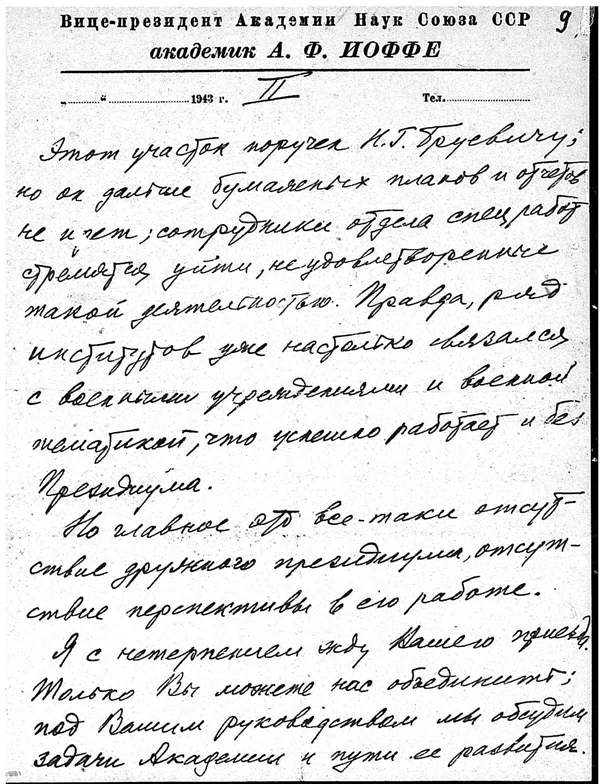 Вице-президент Академии Наук Союза ССР 9
академик А. Ф. ИОФФЕ
„......“.................1943 г. II Тел.................
Этот участок поручен Н. Г. Бруевичу;
но он дальше бумажных планов и отчетов
не идет; сотрудники отдела спец. работ
стремятся уйти, неудовлетворенные
такой деятельностью. Правда, ряд
институтов уже настолько связался
с военными учреждениями и военной
тематикой, что успешно работает и без
Президиума.
Но главное это все-таки отсут-
ствие дружного президиума, отсут-
ствие перспективы в его работе.
Я с нетерпением жду Вашего приезда.
Только Вы можете нас объединить;
под Вашим руководством мы обсудим
задачи Академии и пути ее развития.